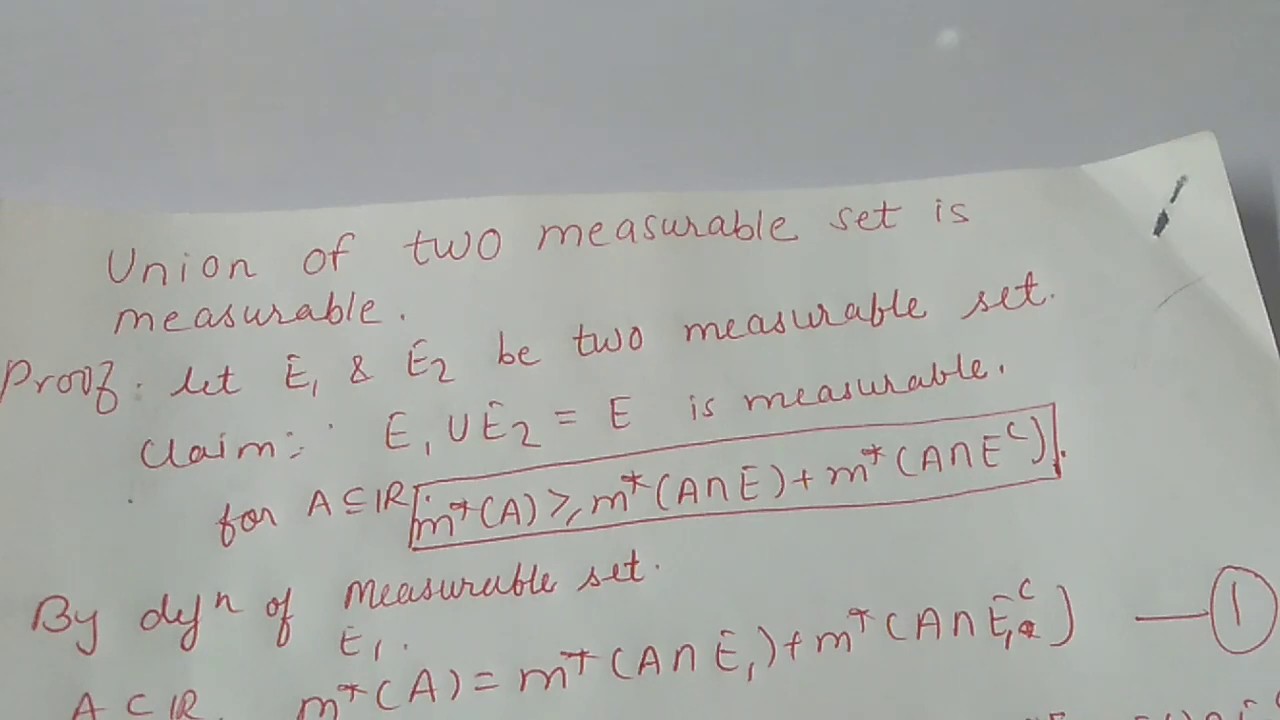 Union of two measurable set is
measurable.
Proof: let E₁ & E₂ be two measurable set.
Claim:- E₁ ∪ E₂ = E is measurable.
for A ⊆ IR m*(A) ≥ m*(A∩E) + m*(A∩Eᶜ).
By defⁿ of measurable set.
E₁.
A ⊂ IR m*(A) = m*(A∩E₁) + m*(A∩E₁ᶜ) — ①